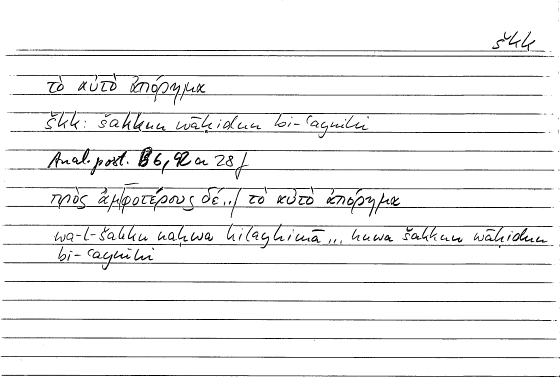 škk
τὸ αὐτὸ ἀπόρημα
škk: šakkun wāḥidun bi-ʿaynihi
Anal. post. B 6, 92 a 28 f
πρὸς ἀμφοτέρους δέ../ τὸ αὐτὸ ἀπόρημα
wa-l-šakku naḥwa kilayhimā ... huwa šakkun wāḥidun
bi-ʿaynihi